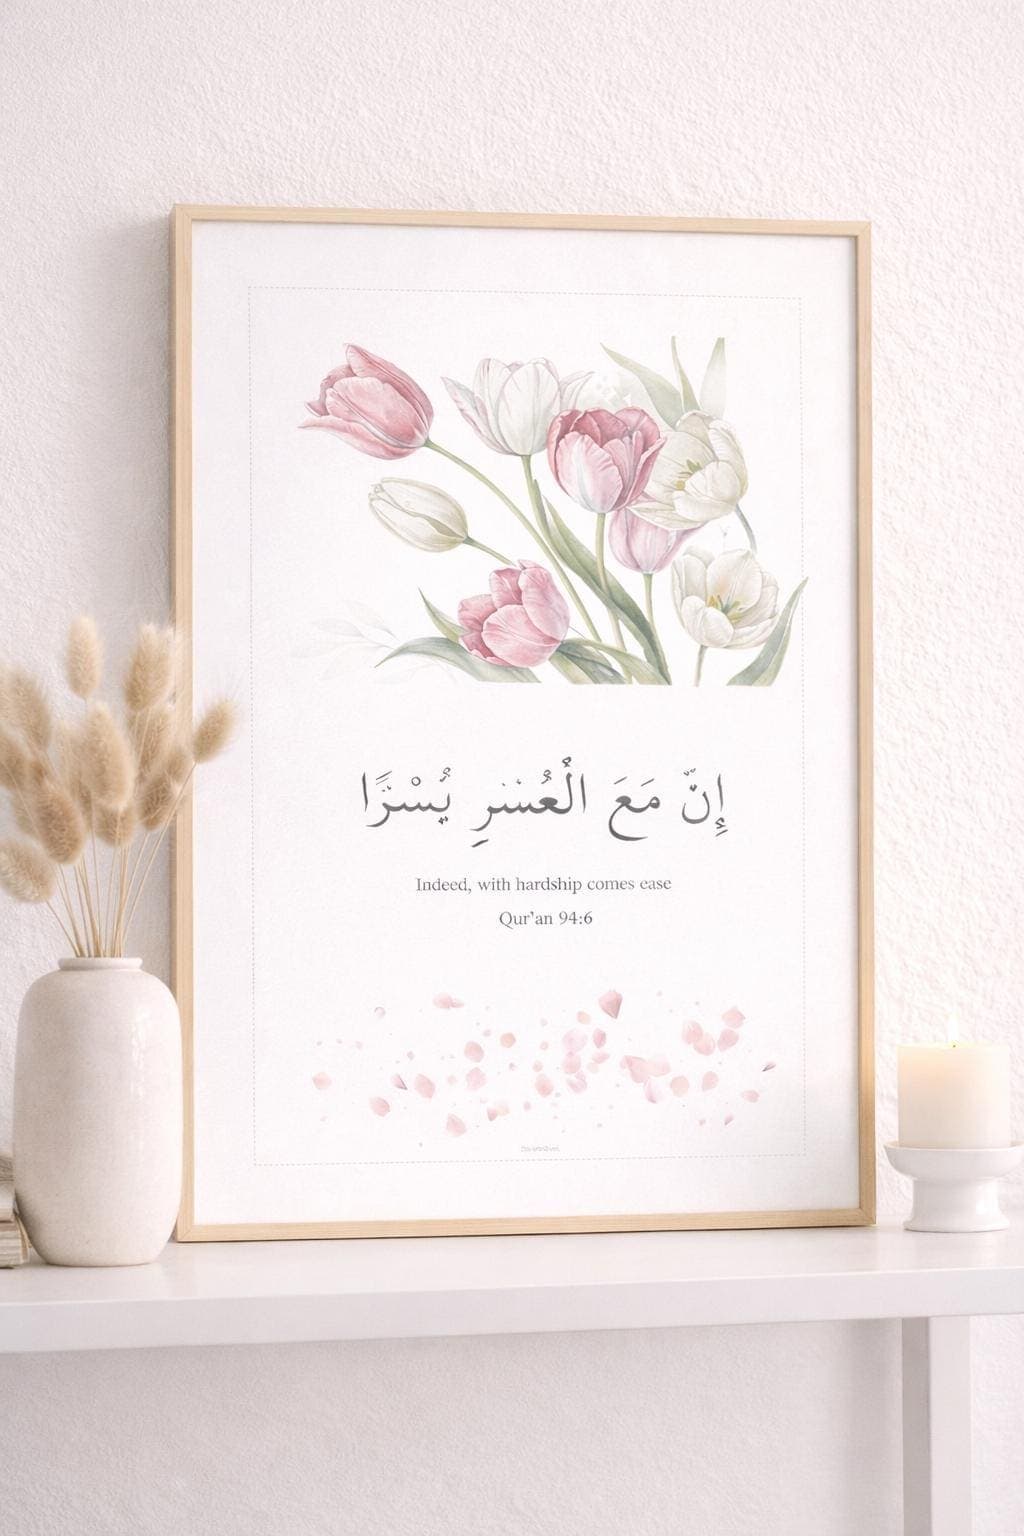 إِنّ مَعَ الْعُسْرِ يُسْرًا
Indeed, with hardship comes ease
Qur'an 94:6